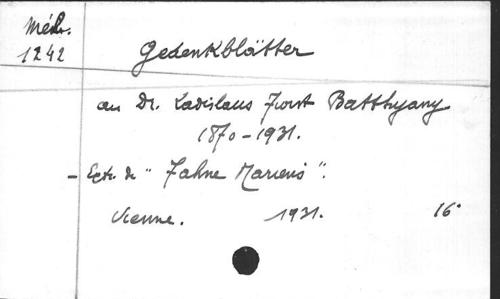 Méd.
1242
Gedenkblätter
an Dr. Ladislaus Fürst Batthyany
1870-1931.
- Extr. de "Fahne Mariens".
Vienne. 1931. 16°